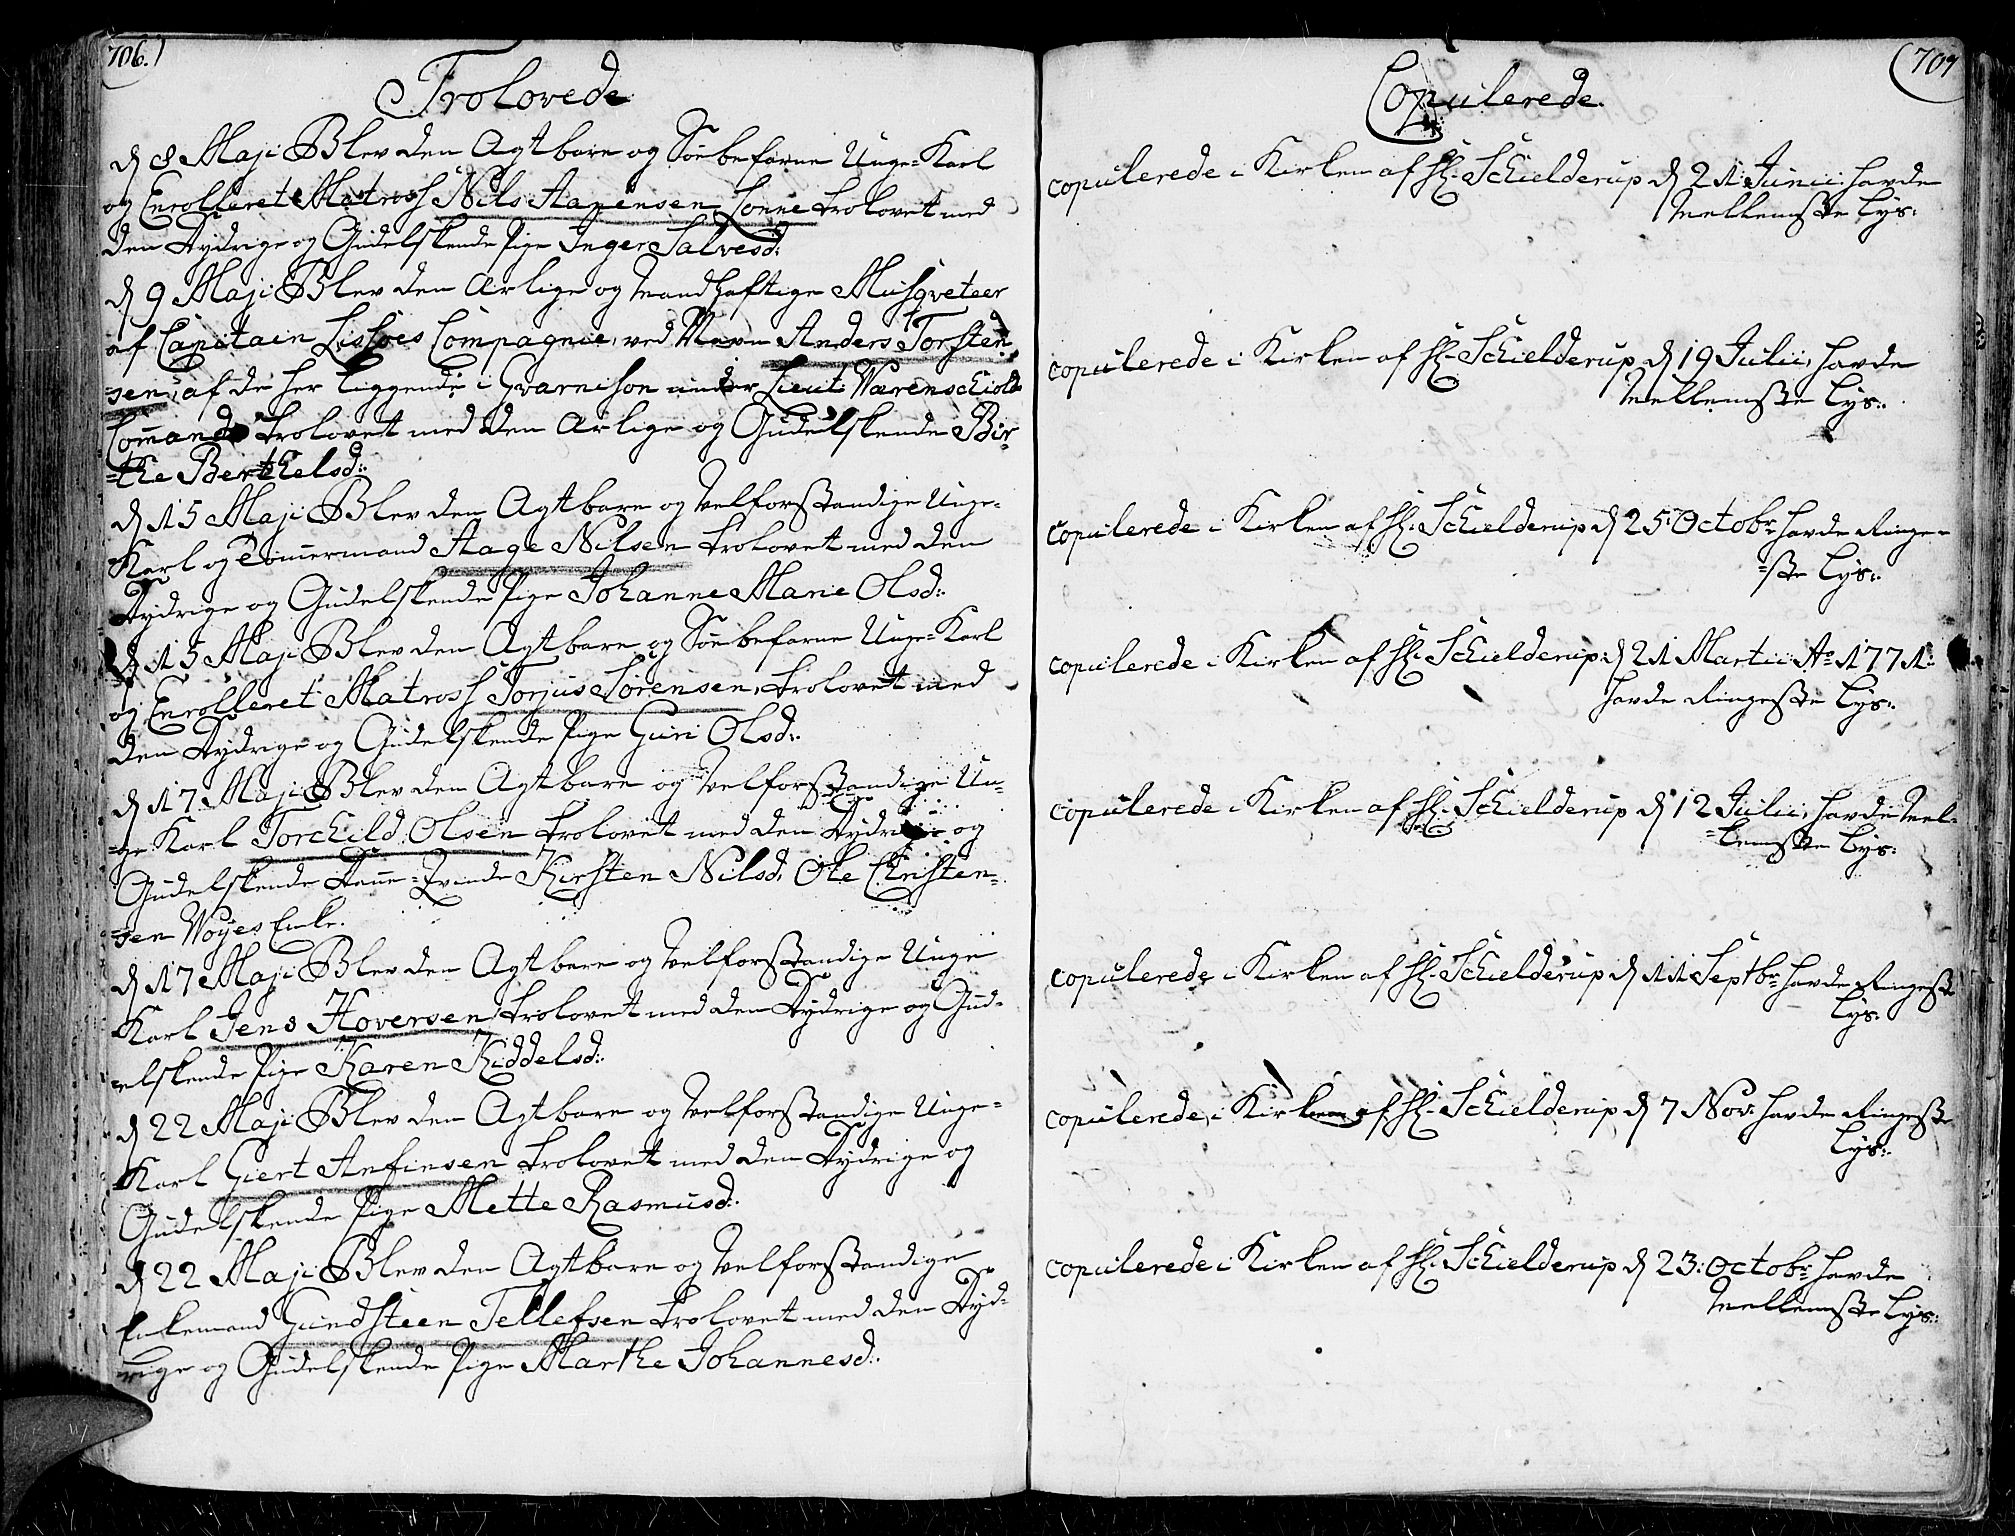 706.)
Trolovede
d 8 Maji Blev den Agtbare og Söebefarne Unge=Karl
og Enrolleret Matross Nils Aanensen Lønne trolovet med
den Dydrige og Gudelskende Pige Inger Salvesd:
d 9 Maji Blev den Ærlige og Mandhaftige Musqveteer
af Capitain Lissoes Compagnie, ved Navn Anders Torsten
=sen, af de her liggende i Gvarnison under Lieut: Værenschiolds
Com̄ando trolovet med den Ærlige og Gudelskende Bir=
=the Berthelsd:
d 15 Maji Blev den Agtbare og Velforstandige Unge=
Karl og Tömmermand Aage Nilsen trolovet med den
Dydrige og Gudelskende Pige Johanne Marie Olsd:
d 15 Maji Blev den Agtbare og Söebefarne Unge=Karl
og Enrolleret Matross Torjus Sørensen, trolovet med
den Dydrige og Gudelskende Pige Guri Olsd:
d 17 Maji Blev den Agtbare og Velforstandige Un=
=ge Karl Torchild Olsen trolovet med den Dydrige og
Gudelskende Dane=Qvinde Kirsten Nilsd, Ole Christen=
=sen Woyes Enke.
d 17 Maji Blev den Agtbare og Velforstandige Unge
Karl Jens Hoversen trolovet med den Dydrige og Gud=
=elskende Pige Karen Kiddelsd:
d 22 Maji Blev den Agtbare og Velforstandige Unge=
Karl Giert Anfinsen trolovet med den Dydrige og
Gudelskende Pige Mette Rasmusd:
d 22 Maji Blev den Agtbare og Velforstandige
Enkemand Gundsteen Tellefsen trolovet med den Dyd=
rige og Gudelskende Pige Marthe Johannesd:
(707
Copulerede.
copulerede i Kirken af H: Schielderup d 21 Junii havde
Mellemste Lys:
copulerede i Kirken af H: Schielderup d 19 Julii, havde
Mellemste Lys:
copulerede i Kirken af H: Schielderup d 25 Octobr havde Ringe=
=ste Lys:
copulerede i Kirken af H: Schielderup d 21 Martii Ao 1771:
havde Ringeste Lys:
copulerede i Kirken af H: Schielderup d 12 Julii, havde Mel=
=lemste Lys:
copulerede i Kirken af H: Schielderup d 11 Septbr havde Ringeste
Lys:
copulerede i Kirken af H: Schielderup d 7 Nov: havde Ringeste
Lys:
copulerede i Kirken af H: Schielderup d 23: Octobr havde
Mellemste Lys: